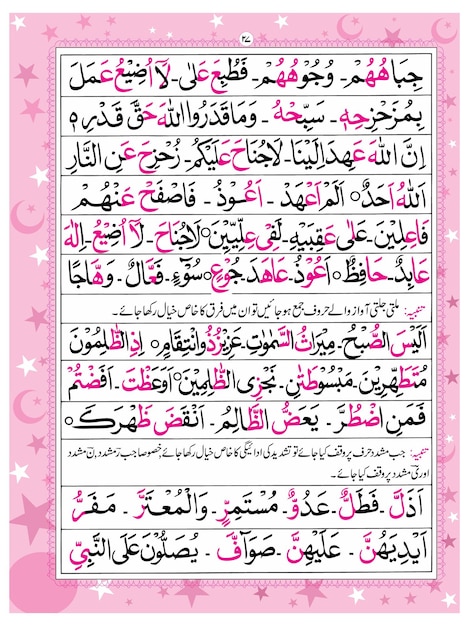 ۲۷
جِبَاهُهُمْ۔ وُجُوْهُهُمْ۔ فَطُبِعَ عَلٰى۔ لَاۤ اُضِيْعُ عَمَلَ
بِمُزَحْزِحِهٖ۔ سَبِّحْهُ۔ وَمَا قَدَرُوا اللّٰهَ حَقَّ قَدْرِهٖ
اِنَّ اللّٰهَ عَهِدَ اِلَيْنَا۔ لَاجُنَاحَ عَلَيْكُمْ۔ زُحْزِحَ عَنِ النَّارِ
اَللّٰهُ اَحَدٌ۝ اَلَمْ اَعْهَدْ۔ اَعُوْذُ۔ فَاصْفَحْ عَنْهُمْ
فَاعِلِيْنَ۔ عَلٰى عَقِبَيْهِ۔ لَفِىْ عِلِّيِّيْنَ۝ لَاجُنَاحَ۔ لَاۤ اُضِيْعُ۔ اِلٰهَ
عَابِدٌ۔ حَافِظٌ۝ اَعُوْذُ۔ عَاهَدَ۔ جُوْعٍ۔ سُوْٓءٍ۔ فَعَّالٌ۔ وَهَّاجًا
تنبیہ: ملتی جلتی آواز والے حروف جمع ہو جائیں تو ان میں فرق کا خاص خیال رکھا جائے۔
اَلَيْسَ الصُّبْحُ۔ مِيْرَاثُ السَّمٰوٰتِ۔ عَزِيْزٌ ذُو انْتِقَامٍ۝ اِذِ الظّٰلِمُوْنَ
مُتَطَهِّرِيْنَ۔ مَبْسُوْطَتٰنِ۔ نَجْزِى الظّٰلِمِيْنَ۝ اَوَعَظْتَ۔ اَفَضْتُمْ
فَمَنِ اضْطُرَّ۔ يَعَضُّ الظَّالِمُ۔ اَنْقَضَ ظَهْرَكَ۝
تنبیہ: جب مشدد حرف پر وقف کیا جائے تو تشدید کی ادائیگی کا خاص خیال رکھا جائے خصوصاً جب ر مشدد، ن مشدد
اور ی مشدد پر وقف کیا جائے۔
اَذَلَّ۔ فَطَلٌّ۔ عَدُوٌّ۔ مُسْتَمِرٌّ۔ وَالْمُعْتَرَّ۔ مَفَرُّ
اَيْدِيَهُنَّ۔ عَلَيْهِنَّ۔ صَوَآفَّ۔ يُصَلُّوْنَ عَلَى النَّبِىِّ